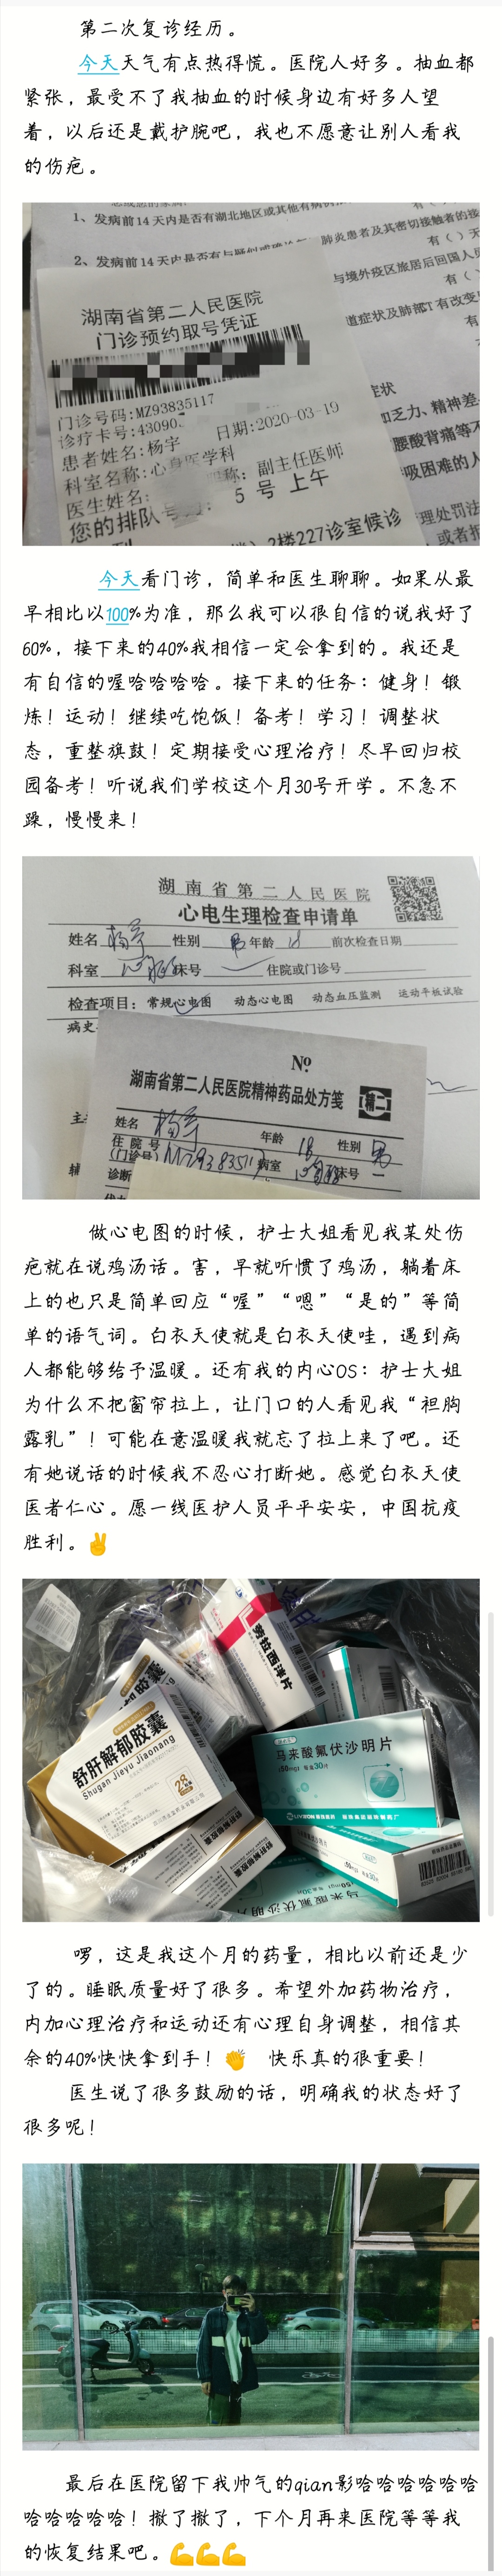 第二次复诊经历。
今天天气有点热得慌。医院人好多。抽血都
紧张，最受不了我抽血的时候身边有好多人望
着，以后还是戴护腕吧，我也不愿意让别人看我
的伤疤。
1、发病前14天内是否有湖北地区或其他有病例
有（
2、发病前14天内是否有与疑似或确诊
肺炎患者及其密切接触者的接
有（ ）天
与境外疫区旅居后回国人员
有（
道症状及肺部CT有改变
有
湖南省第二人民医院
门诊预约取号凭证
门诊号码:MZ93835117
诊疗卡号:43090
日期:2020-03-19
患者姓名:杨宇
科室名称:心身医学科
职称: 副主任医师
医生姓名:
您的排队号
5 号 上午
2楼227诊室候诊
症状
如乏力、精神差
腰酸背痛等不
呼吸困难的人
理处罚法
或者拒
今天看门诊，简单和医生聊聊。如果从最
早相比以100%为准，那么我可以很自信的说我好了
60%，接下来的40%我相信一定会拿到的。我还是
有自信的喔哈哈哈哈。接下来的任务：健身！锻
炼！运动！继续吃饱饭！备考！学习！调整状
态，重整旗鼓！定期接受心理治疗！尽早回归校
园备考！听说我们学校这个月30号开学。不急不
躁，慢慢来！
湖南省第二人民医院
心电生理检查申请单
姓名 杨宇 性别 男 年龄 18 前次检查日期
科室 床号 住院或门诊号
检查项目: 常规心电图 动态心电图 动态血压监测 运动平板试验
病史
主
辅
№
湖南省第二人民医院精神药品处方笺 精二
姓名 杨宇 年龄 18 性别 男
住院号
(门诊号) MZ93835117 病室 床号
诊断
做心电图的时候，护士大姐看见我某处伤
疤就在说鸡汤话。害，早就听惯了鸡汤，躺着床
上的也只是简单回应“喔”“嗯”“是的”等简
单的语气词。白衣天使就是白衣天使哇，遇到病
人都能够给予温暖。还有我的内心OS：护士大姐
为什么不把窗帘拉上，让门口的人看见我“袒胸
露乳”！可能在意温暖我就忘了拉上来了吧。还
有她说话的时候我不忍心打断她。感觉白衣天使
医者仁心。愿一线医护人员平平安安，中国抗疫
胜利。✌
劳拉西泮片
舒肝解郁胶囊
Shugan Jieyu Jiaonang
28
马来酸氟伏沙明片
50mg 每盒30片
LIVZON 丽珠医药 丽珠集团丽珠制药厂
50mg 每盒30片
舒肝解郁胶囊
马来酸氟伏沙明片
啰，这是我这个月的药量，相比以前还是少
了的。睡眠质量好了很多。希望外加药物治疗，
内加心理治疗和运动还有心理自身调整，相信其
余的40%快快拿到手！👏 快乐真的很重要！
医生说了很多鼓励的话，明确我的状态好了
很多呢！
最后在医院留下我帅气的qian影哈哈哈哈哈哈
哈哈哈哈哈！撤了撤了，下个月再来医院等等我
的恢复结果吧。💪💪💪